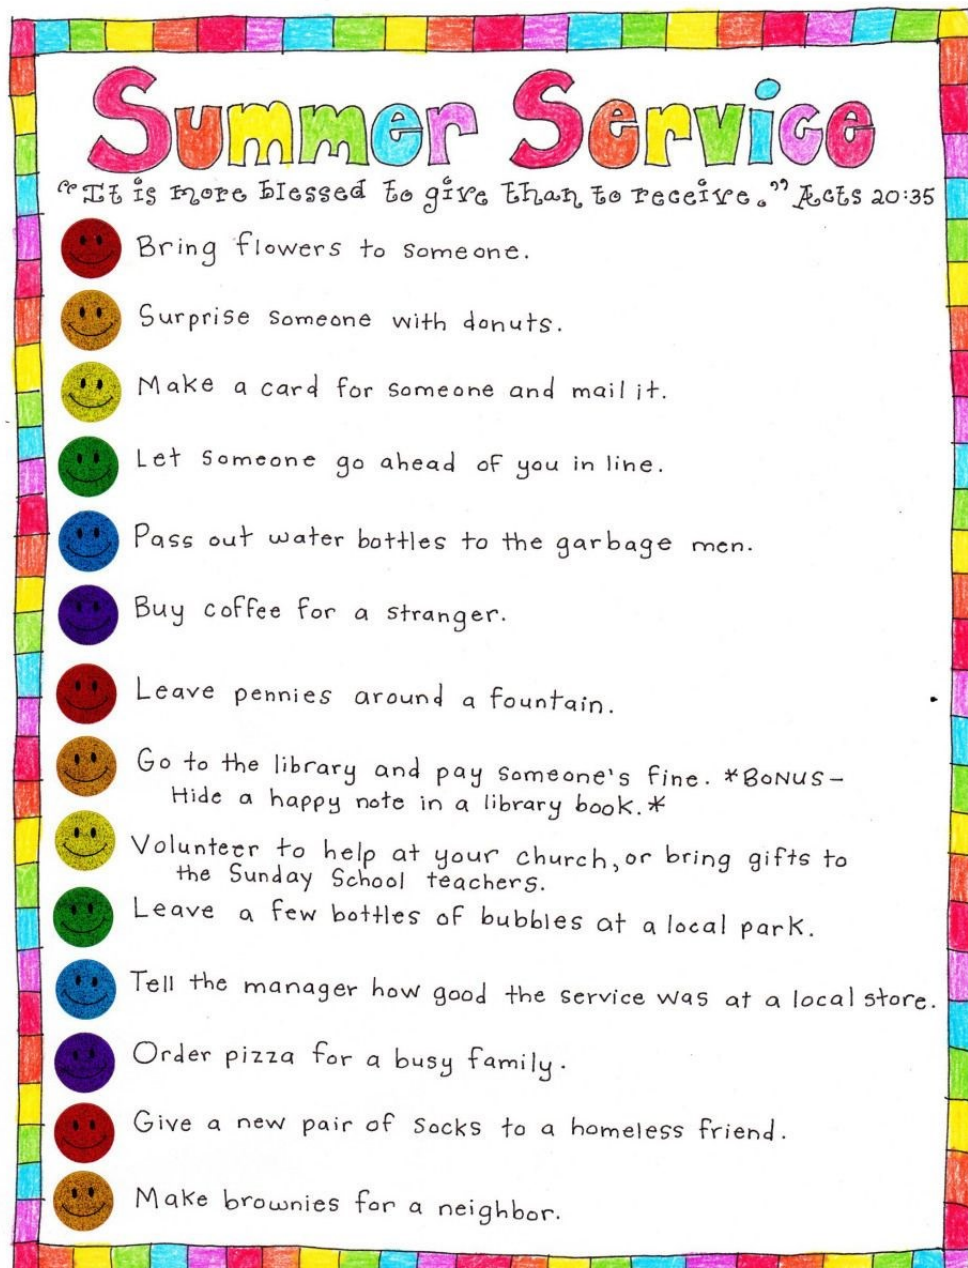 Summer Service
"It is more blessed to give than to receive." Acts 20:35
Bring flowers to someone.
Surprise someone with donuts.
Make a card for someone and mail it.
Let someone go ahead of you in line.
Pass out water bottles to the garbage men.
Buy coffee for a stranger.
Leave pennies around a fountain.
Go to the library and pay someone's fine. *BONUS-
Hide a happy note in a library book.*
Volunteer to help at your church, or bring gifts to
the Sunday School teachers.
Leave a few bottles of bubbles at a local park.
Tell the manager how good the service was at a local store.
Order pizza for a busy family.
Give a new pair of socks to a homeless friend.
Make brownies for a neighbor.